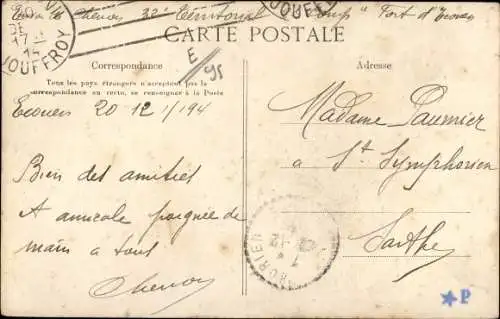 Chenon 32e Territorial Fort d'Ecouen
JOUFFROY
14
CARTE POSTALE
E
95
Correspondance
Adresse
Tous les pays étrangers n'acceptent pas la
correspondance au recto, se renseigner à la Poste
Ecouen 20 12/194
Bien des amitiés
A amicale poignée de
main a tous
Chenon
Madame Paumier
a St Symphorien
Sarthe
★P